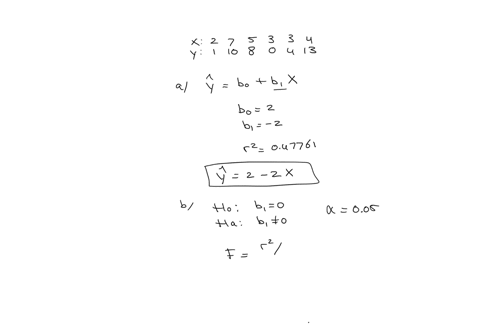 X: 2 7 5 3 3 4
Y: 1 10 8 0 4 13
a/ Ŷ = b₀ + b₁ X
b₀ = 2
b₁ = -2
r² = 0.47761
Ŷ = 2 - 2 X
b/ H₀: b₁ = 0 α = 0.05
Ha: b₁ ≠ 0
F = r² /